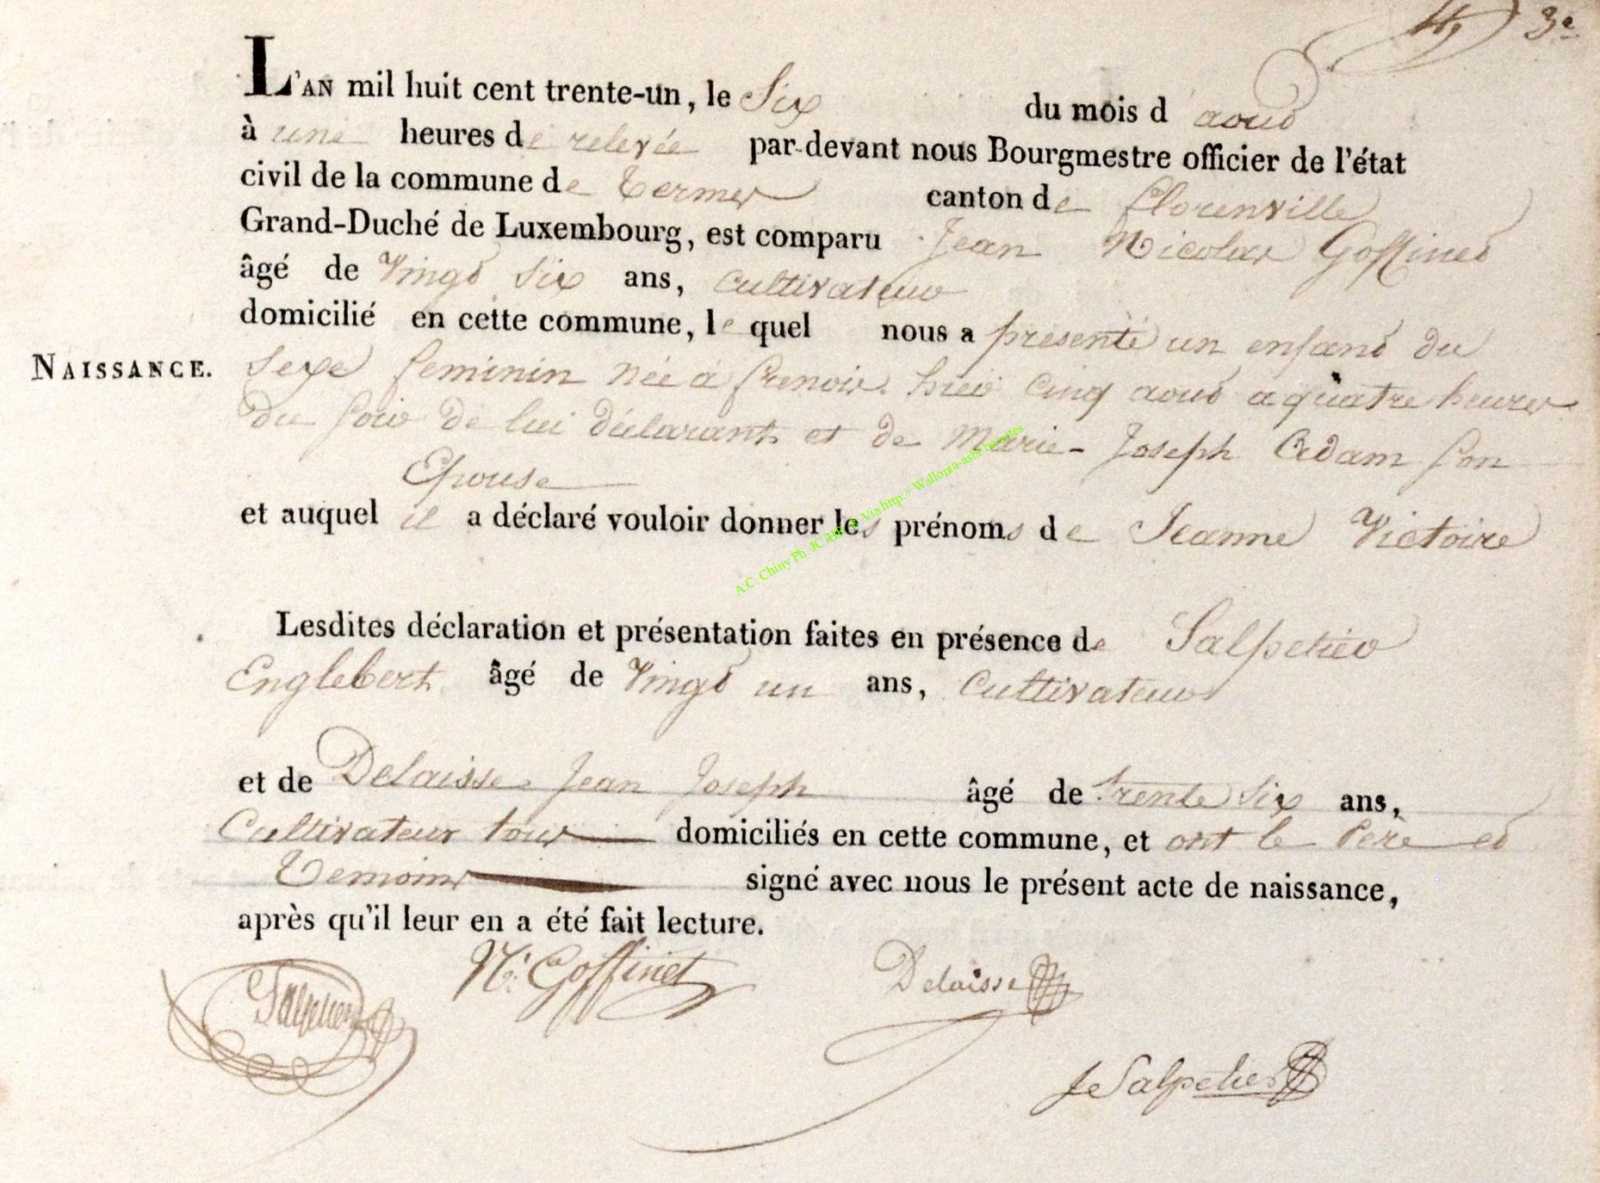 3e
L'AN mil huit cent trente-un, le Six du mois d'aout
à une heures de relevée par-devant nous Bourgmestre officier de l'état
civil de la commune de Termes canton de florenville
Grand-Duché de Luxembourg, est comparu Jean Nicolas Goffinet
âgé de Vingt Six ans, cultivateur
domicilié en cette commune, le quel nous a présenté un enfant du
NAISSANCE. Sexe feminin née à frenois hier cinq aout a quatre heures
du soir de lui déclarant et de Marie-Joseph Adam son
Epouse
et auquel il a déclaré vouloir donner les prénoms de Jeanne Victoire
A.C. Chiny Ph. Via http. Wallonia-asbl
Lesdites déclaration et présentation faites en présence de Salpetier
Englebert âgé de Vingt un ans, Cultivateur
et de Delaisse Jean Joseph âgé de trente Six ans,
Cultivateur tous domiciliés en cette commune, et ont le Père et
Temoins signé avec nous le présent acte de naissance,
après qu'il leur en a été fait lecture.
Salpetier N. Goffinet Delaisse
Salpetier